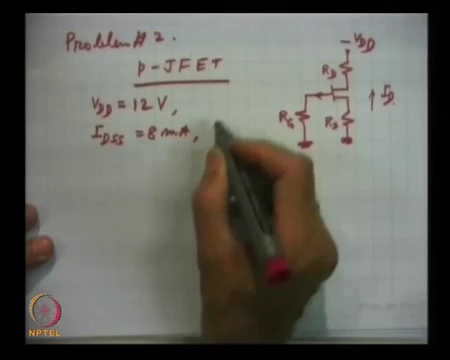 Problem # 2.
p - JFET
V_DD = 12 V,
I_DSS = 8 mA,
-V_DD
R_D
I_D
R_G
R_S
NPTEL